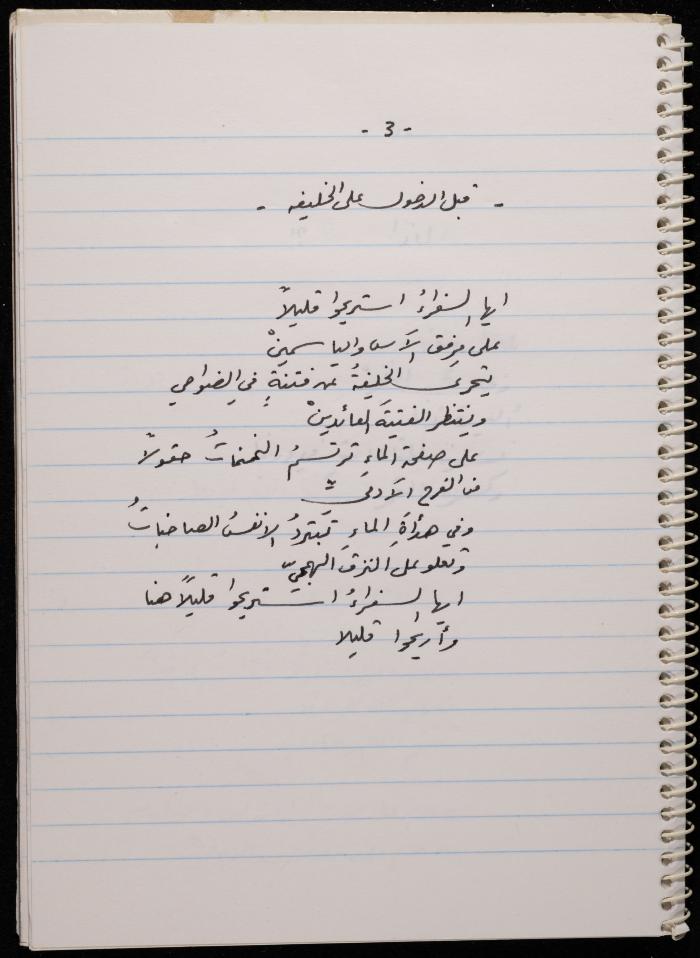 - 3 -
- قبل الدخول على الخليفه -
ايها السفراءُ استريحوا قليلاً
على مِرفق الآس والياسمينْ
يتحرى الخليفةُ عن فتنةٍ في الضواحي
وينتظر الفتيةَ العائدينْ
على صفحة الماءِ ترتسمُ النمنماتُ حقولاً
من الفرح الآدميّ
وفي هدأةِ الماءِ تَبتردُ الانفسُ الصاخباتُ
وتعلو على النزقِ الهمجيّ
ايها السفراءُ استريحوا قليلاً هنا
وأريحوا قليلا